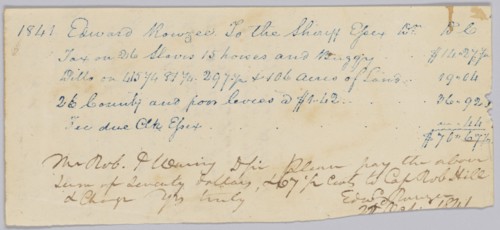 1841 Edward Rowzee To the Sheriff Essex Dr. D C
Tax on 26 Slaves 15 horses and Buggy . . $14-37½
Ditto on 457¼ 81¼ 297¾ & 106 acres of Land . . 19-04
26 County and poor Levies @ $1.42 . . . 36-92
Fee due Clk Essex . . . . 44
$70-67½
Mr Rob. P Waring D. Sir Please pay the above
sum of Seventy Dollars, & 67½ Cents to Cap Rob Hill
& Charge Yrs truly
Edwd Rowzee
1841